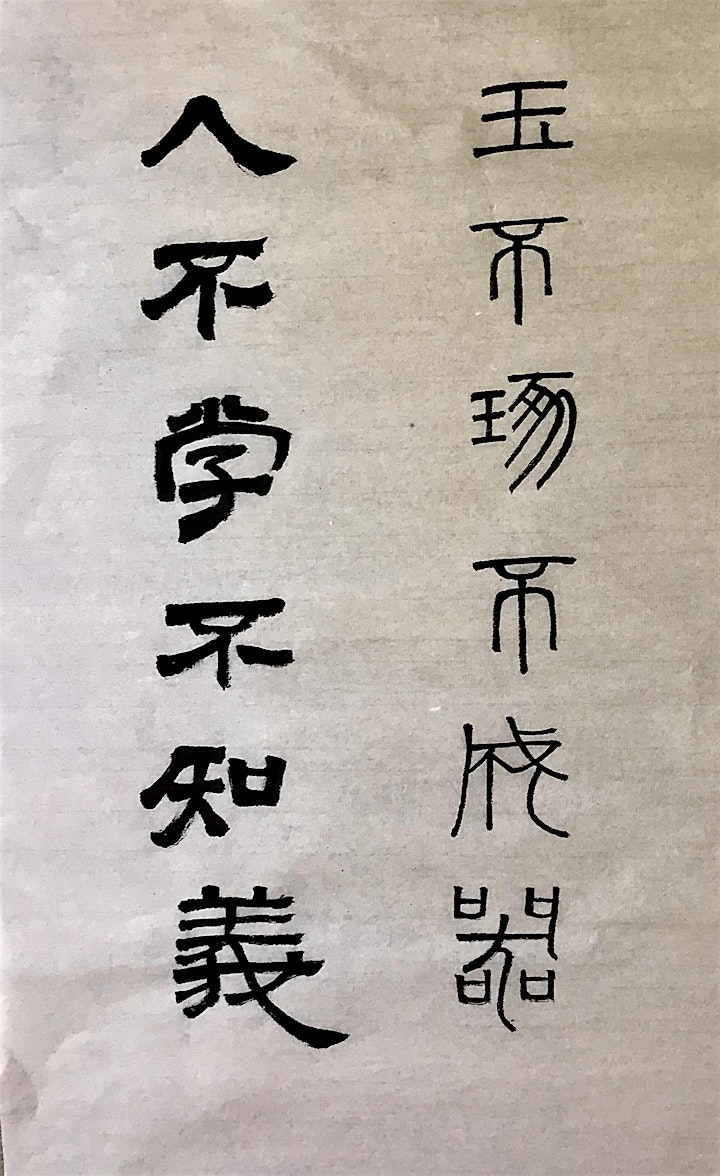 玉不琢不成器
人不学不知義